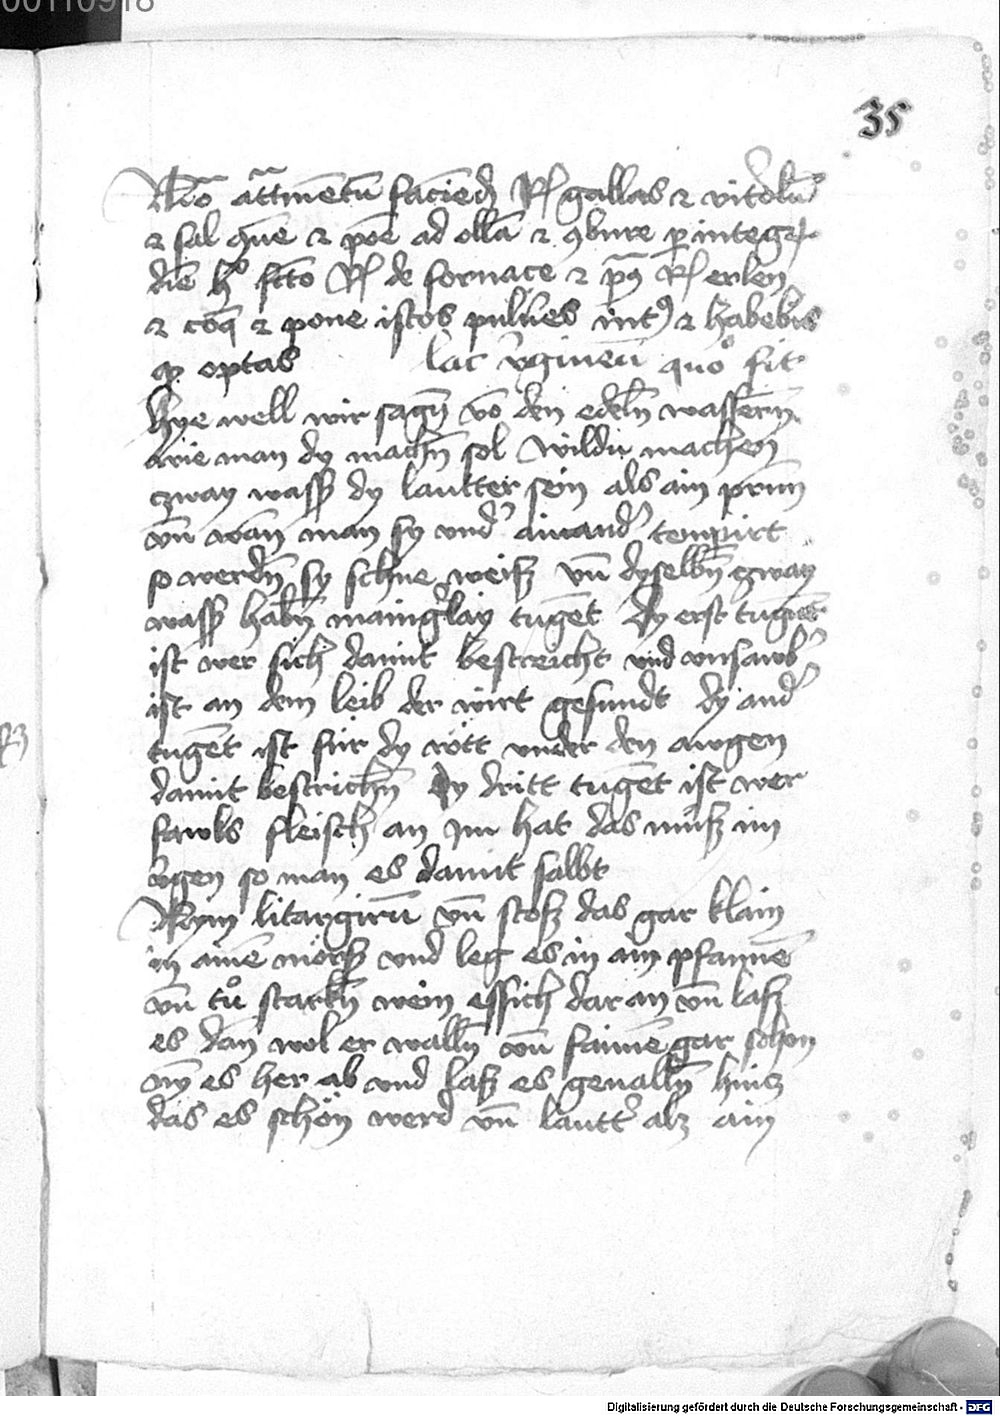 00110918
35
attmētū faciēd Rͨ gallas ⁊ vit'olū
⁊ sal ⁊ poe ad ollā ⁊ ꝯbure ꝑ integrū
diē Rͨ de fornace ⁊ Rͨ erlen
⁊ coq̄ ⁊ pone istos pulūes ⁊ habebis
optas lac v'gineū quo fit
Hye well wir sagn̄ vō den edeln̄ wassern̄
wie man dy machn̄ sol wildu machen
czway wass' dy lautter sein als ain prun̄
vn̄ wan̄ man sy vnd' ainand' tempirt
so werdn̄ sy schne weisz vn̄ dyselbn̄ zway
wass' habn̄ maing'lay tugēt Dy erst tugēt
ist wer sich damit bestreicht vnd vnsawb'
ist an dem leib der wirt gesundt dy and'
tugēt ist für dy rött vnder den awgen
damit bestrichn̄ Dy dritt tugēt ist wer
fawls fleisch an im hat das musz im
so man es damit salbt
Nym litargirū vn̄ stosz das gar klain
in aim̄e mörs' vnd leg es in ain pfannē
vn̄ tů starkn̄ wein essich dar an vn̄ lasz
es dan̄ wol er walln̄ vn̄ faimē gar schon
nȳ es her ab vnd lasz es gevalln̄ hincz
das es schön werd vn̄ lautt' alz ain
Digitalisierung gefördert durch die Deutsche Forschungsgemeinschaft - DFG